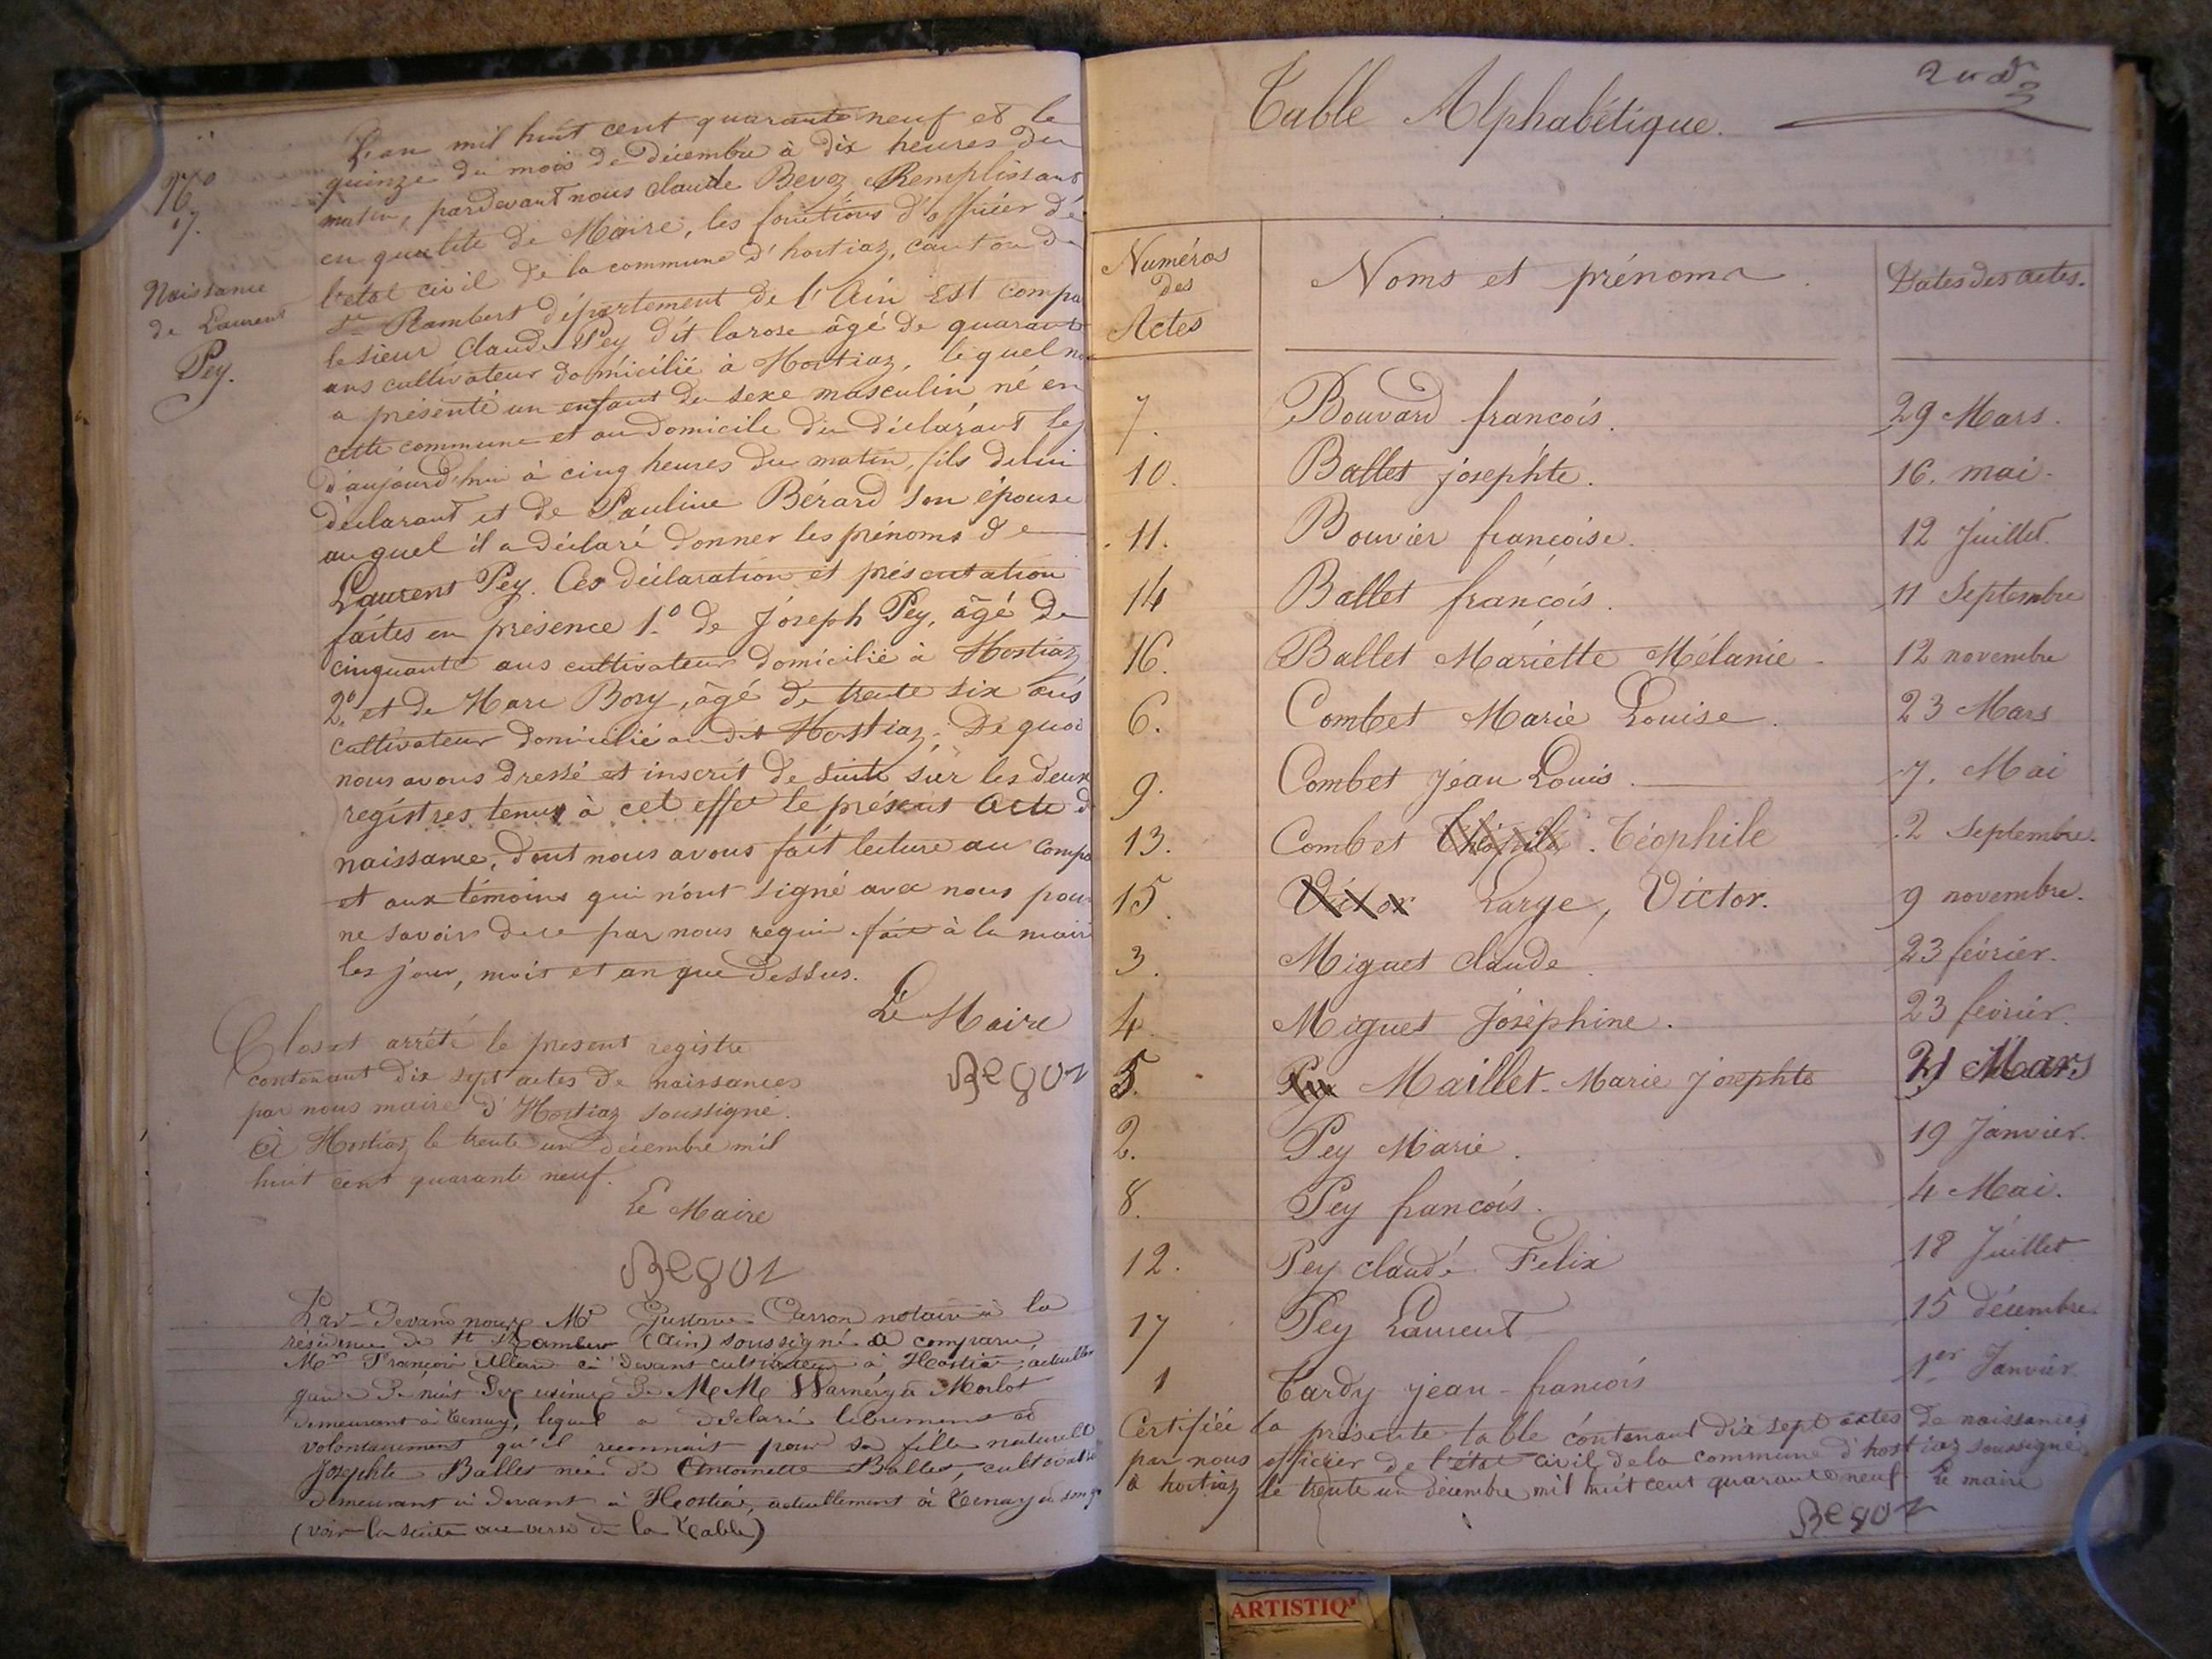 17
Naissance
de Laurent
Pey.
L'an mil huit cent quarante neuf et le
quinze du mois de Décembre à dix heures du
matin, pardevant nous claude Begoz, Remplissant
en qualité de Maire, les fonctions d'officier de
l'état civil de la commune d'hostiaz, canton de
St Rambert département de l'Ain Est compa
le sieur Claude Pey dit larose âgé de quarante
ans cultivateur domicilié à Hostiaz, lequel n
a présenté un enfant du sexe masculin né en
cette commune et au domicile du déclarant le
d'aujourd'hui à cinq heures du matin, fils de lui
déclarant et de Pauline Bérard son épouse
auquel il a déclaré donner les prénoms de
Laurent Pey. Ces déclaration et présentation
faites en présence 1.o de Joseph Pey, âgé de
cinquante ans cultivateur domicilié à Hostiaz
2.o et de Marc Bory, âgé de trente six ans
cultivateur domicilié au dit Hostiaz; De quoi
nous avons dressé et inscrit de suite sur les deux
registres tenus à cet effet le présent acte d
naissance, dont nous avons fait lecture au compa
et aux témoins qui n'ont signé avec nous pour
ne savoir de ce par nous requis. fait à la mairi
les jour, mois et an que dessus.
Le Maire
Begoz
Clos et arrêté le present registre
contenant dix sept actes de naissances
par nous maire d'Hostiaz soussigné.
à Hostiaz le trente un décembre mil
huit cent quarante neuf.
Le Maire
Begoz
Par-devant nous Me Gustave Carron notaire à la
résidence de St Rambert (Ain) soussigné a comparu
Mr François Allard ci devant cultivateur à Hostiaz, actuellem
garde de nuit des usines de MM Warnery et Morlot
demeurant à Tenay, lequel a déclaré librement et
volontairement qu'il reconnait pour sa fille naturelle
Josephte Ballet née de Antoinette Ballet, cultivatrice
demeurant ci devant à Hostiaz, actuellement à Tenay
(voir la suite au verso de la Table)
Table Alphabétique.
Numéros des Actes Noms et prénoms. Dates des actes.
7. Bouvard francois. 29 Mars.
10. Ballet josephte. 16. mai.
11. Bouvier françoise. 12 Juillet.
14 Ballet françois. 11 Septembre
16. Ballet Mariette Mélanie 12 novembre
6. Combet Marie Louise. 23 Mars
9. Combet Jean Louis. 7. Mai
13. Combet Téophile 2 Septembre.
15. Victor Large, Victor. 9 novembre.
3. Miguet claude 23 février.
4 Miguet Joséphine. 23 février.
5. Pey Maillet Marie Josephte 21 Mars
2. Pey Marie. 19 Janvier.
8. Pey francois. 4 Mai.
12. Pey claude Felix 18 Juillet
17 Pey Laurent 15 décembre.
1 Tardy jean-francois 1er Janvier.
Certifiée la présente table contenant dix sept actes de naissances
par nous officier de l'état civil de la commune d'hostiaz soussigné.
à hostiaz le trente un décembre mil huit cent quarante neuf. Le maire
Begoz
ARTISTIQ